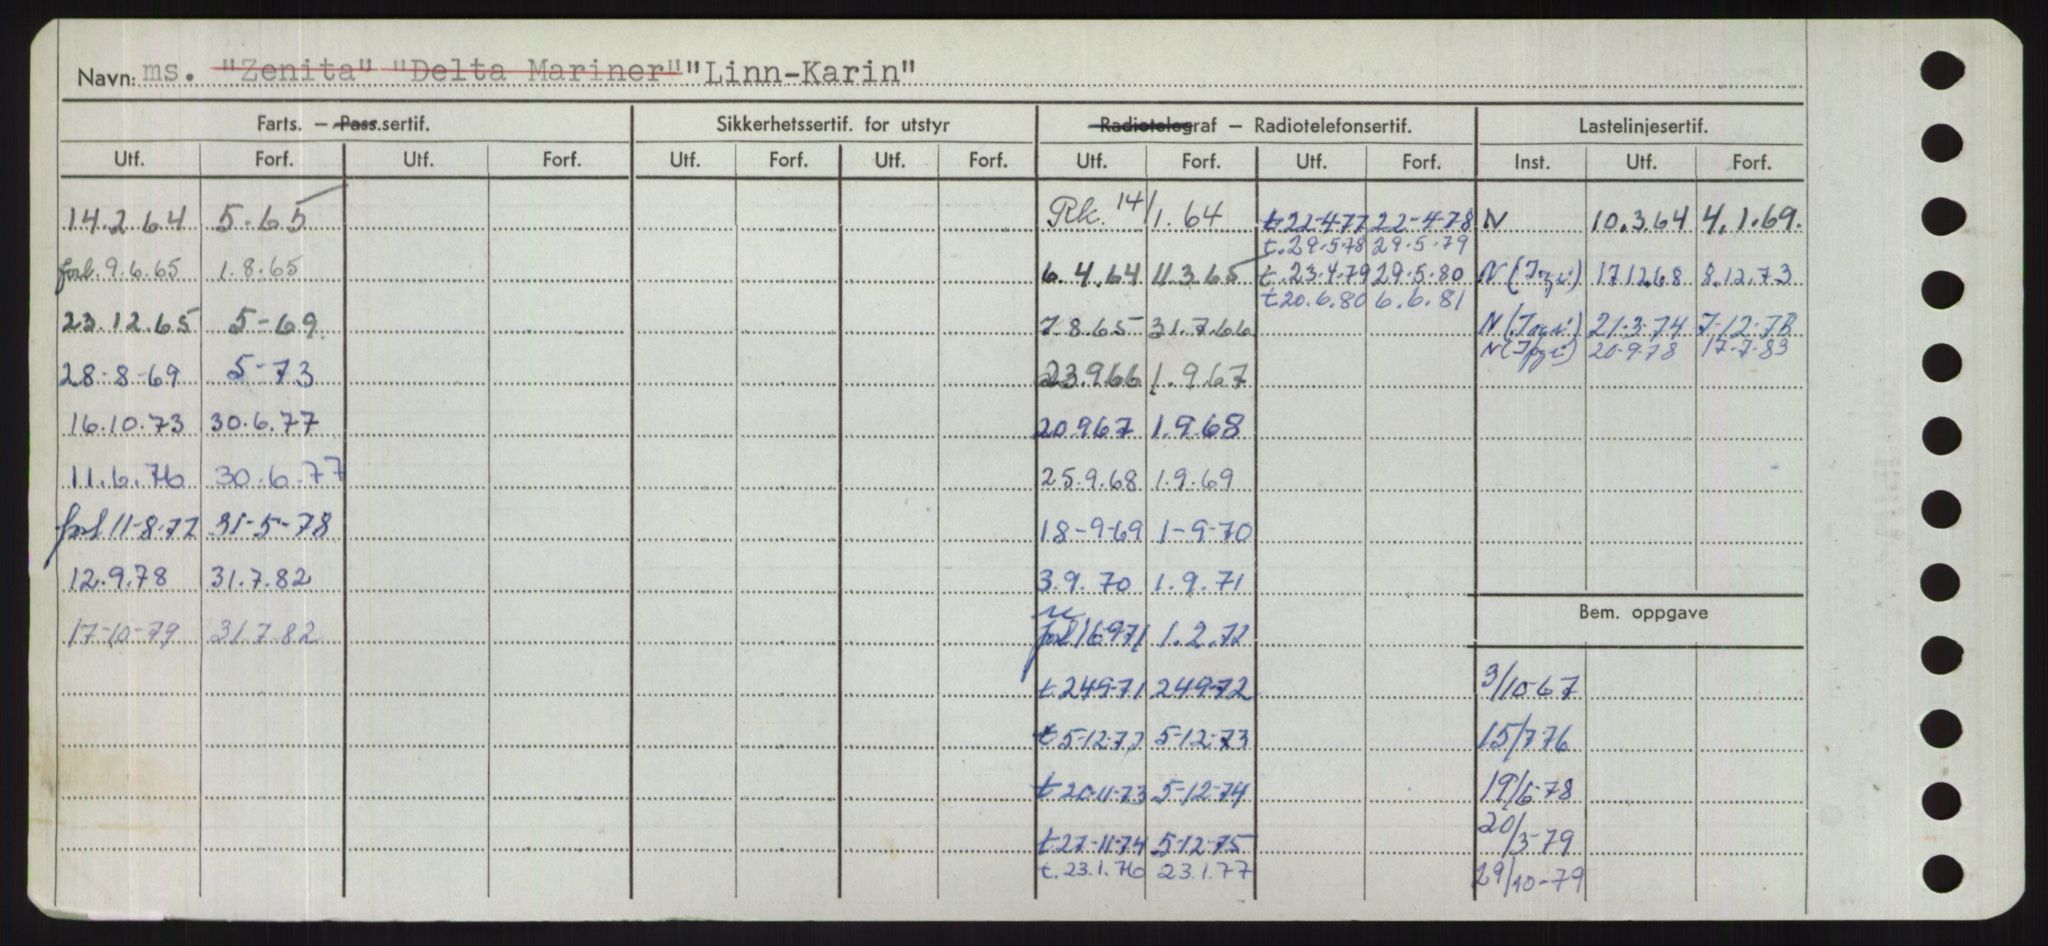 Navn: ms. "Zenita" "Delta Mariner" "Linn-Karin"
Farts. — Pass.sertif. Sikkerhetssertif. for utstyr Radiotelegraf — Radiotelefonsertif. Lastelinjesertif.
Utf. Forf. Utf. Forf. Utf. Forf. Utf. Forf. Utf. Forf. Utf. Forf. Inst. Utf. Forf.
14.2.64 5-65 Rk. 14/1.64 t.22-4-77 22-4-78 N 10.3.64 4.1.69.
t.29.5.78 29.5.79
forl. 9.6.65 1.8.65 6.4.64 11.3.65 t.23.4.79 29.5.80 N 17.12.68 8.12.73
t.20.6.80 6.6.81
23.12.65 5-69 7.8.65 31.7.66 N 21-3-74 7-12-78
N 20-9-78 17-7-83
28-8-69 5-73 23.9.66 1.9.67
16.10.73 30.6.77 20.9.67 1.9.68
11.6.76 30.6.77 25.9.68 1.9.69
forl 11-8-77 31-5-78 18-9-69 1-9-70
12.9.78 31.7.82 3.9.70 1.9.71
Bem. oppgave
17-10-79 31.7.82 forl 16.9.71 1.2.72
t.24-9-71 24-9-72 3/10-67
t 5-12-72 5-12-73 15/7-76
t 20-11-73 5-12-74 19/6-78
t.27-11-74 5-12-75 20/3-79
t.23.1.76 23.1.77 29/10-79